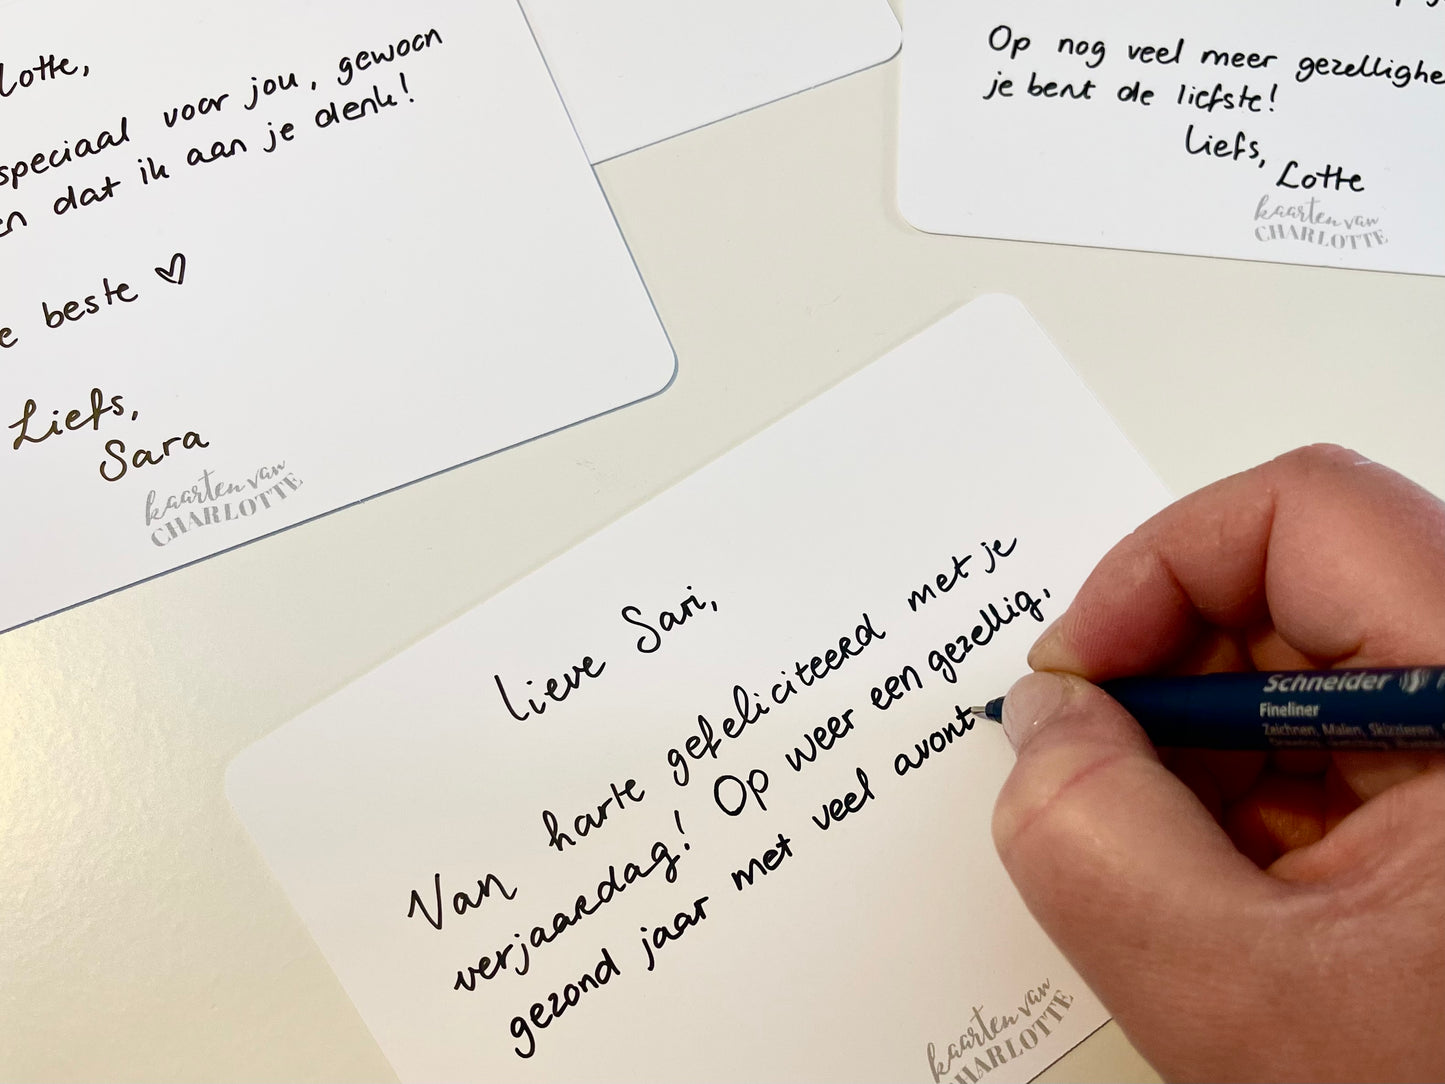 lotte,
speciaal voor jou, gewoon
en dat ik aan je denk!
e beste ♡
Liefs,
Sara
kaarten van
CHARLOTTE
Op nog veel meer gezellighe
je bent de liefste!
Liefs,
Lotte
kaarten van
CHARLOTTE
Lieve Sari,
Van harte gefeliciteerd met je
verjaardag! Op weer een gezellig,
gezond jaar met veel avont
kaarten van
CHARLOTTE
Schneider
Fineliner
Zeichnen, Malen, Skizzieren,